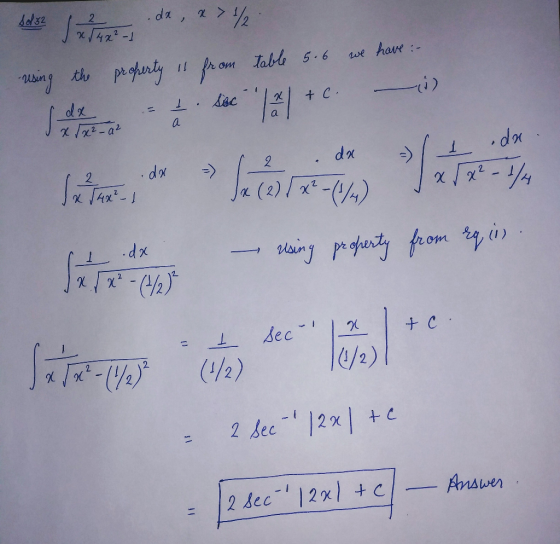 Soln: ∫ 2/(x√(4x²-1)) · dx , x > 1/2 .
using the property 11 from table 5.6 we have :-
∫ dx/(x√(x²-a²)) = 1/a · sec⁻¹ |x/a| + c. —(i)
∫ 2/(x√(4x²-1)) · dx ⇒ ∫ 2/(x(2)√(x²-(1/4))) · dx ⇒ ∫ 1/(x√(x²-1/4)) · dx
∫ 1/(x√(x²-(1/2)²)) · dx ⟶ using property from eq (i) .
∫ 1/(x√(x²-(1/2)²)) = 1/(1/2) sec⁻¹ |x/(1/2)| + c .
= 2 sec⁻¹ |2x| + c
= 2 sec⁻¹ |2x| + c — Answer .